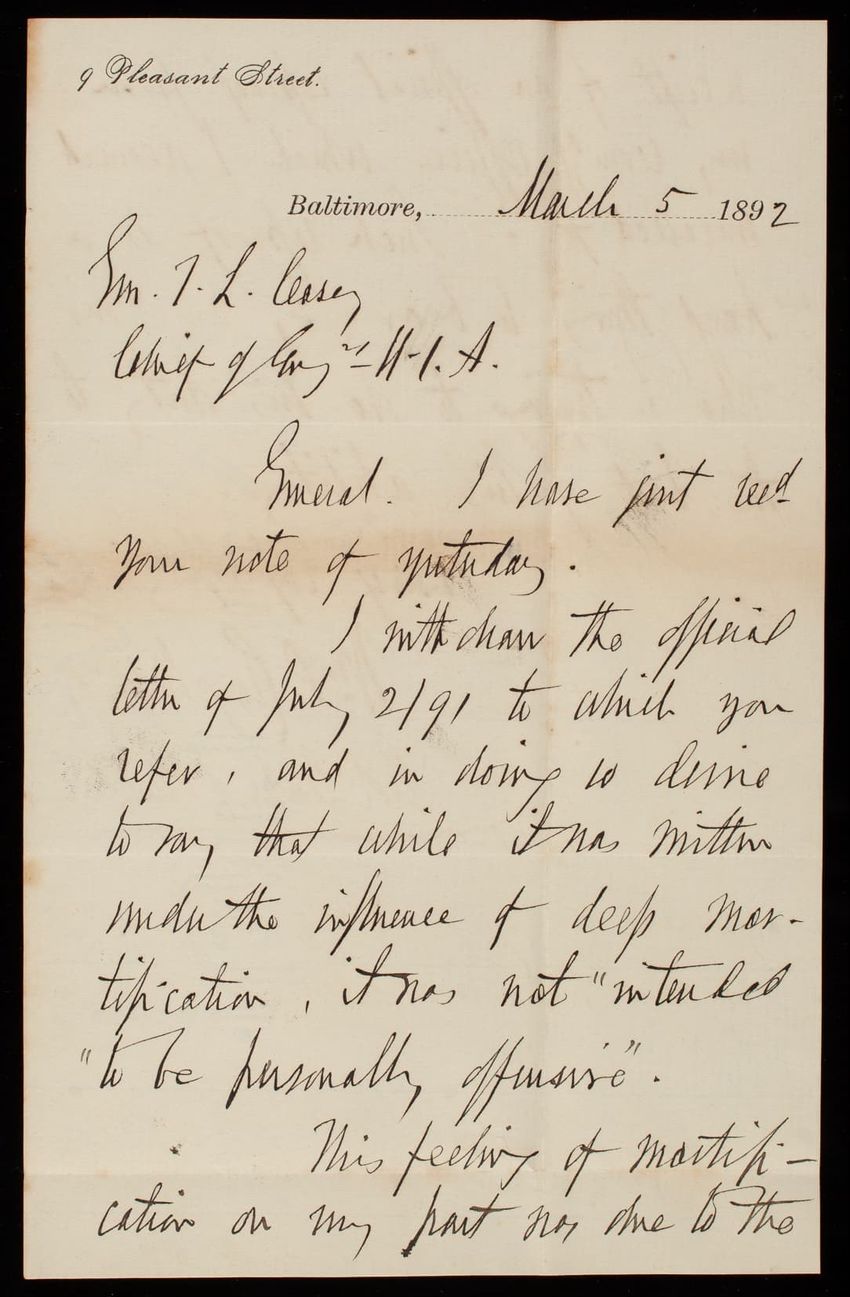 9 Pleasant Street.
Baltimore, March 5 1892
Gen. T. L. Casey
Chief of Eng'rs U.S.A.
General. I have just rec'd
your note of yesterday.
I withdraw the official
letter of July 2/91 to which you
refer, and in doing so desire
to say that while it was written
under the influence of deep mor-
tification, it was not "intended
"to be personally offensive".
This feeling of mortifi-
cation on my part was due to the